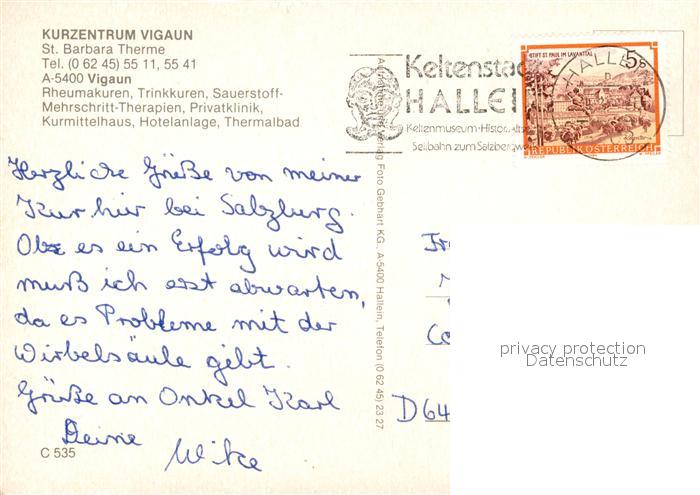 KURZENTRUM VIGAUN
St. Barbara Therme
Tel. (0 62 45) 55 11, 55 41
A-5400 Vigaun
Rheumakuren, Trinkkuren, Sauerstoff-
Mehrschritt-Therapien, Privatklinik,
Kurmittelhaus, Hotelanlage, Thermalbad
Keltenstadt
HALLEIN
Keltenmuseum-Histor.
Seilbahn zum Salzbergwerk
STIFT ST. PAUL IM LAVANTTAL
5S
REPUBLIK ÖSTERREICH
HALLE
Herzliche Grüße von meiner
Kur hier bei Salzburg.
Ob es ein Erfolg wird
muß ich erst abwarten,
da es Probleme mit der
Wirbelsäule gibt.
Grüße an Onkel Karl
Deine
Wike
C 535
Verlag Foto Gebhart KG., A-5400 Hallein, Telefon (0 62 45) 23 27
Fr
Co
D64
privacy protection
Datenschutz